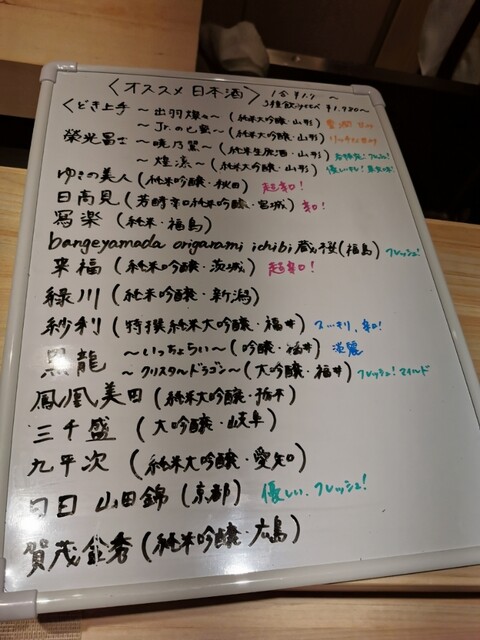 〈オススメ 日本酒〉 1合 ¥1,
3種飲みくらべ ¥1,980〜
くどき上手 〜出羽燦々〜 (純米大吟醸・山形)
〜Jr.の (純米大吟醸・山形)
榮光冨士 〜暁乃翼〜 (純米生原酒・山形)
〜煌凛〜 (純米大吟醸・山形)
ゆきの美人 (純米吟醸・秋田) 超辛口!
日高見 (芳醇辛口純米吟醸・宮城) 辛口!
寫楽 (純米・福島)
bangeyamada origarami ichibi (福島) フレッシュ!
来福 (純米吟醸・茨城) 超辛口!
緑川 (純米吟醸・新潟)
紗利 (特撰純米大吟醸・福井) スッキリ、辛口!
黒龍 〜いっちょらい〜 (吟醸・福井) 淡麗
〜クリスタルドラゴン〜 (大吟醸・福井) フレッシュ!マイルド
鳳凰美田 (純米大吟醸・栃木)
三千盛 (大吟醸・岐阜)
九平次 (純米大吟醸・愛知)
日日 山田錦 (京都) 優しい、フレッシュ!
賀茂金秀 (純米吟醸・広島)